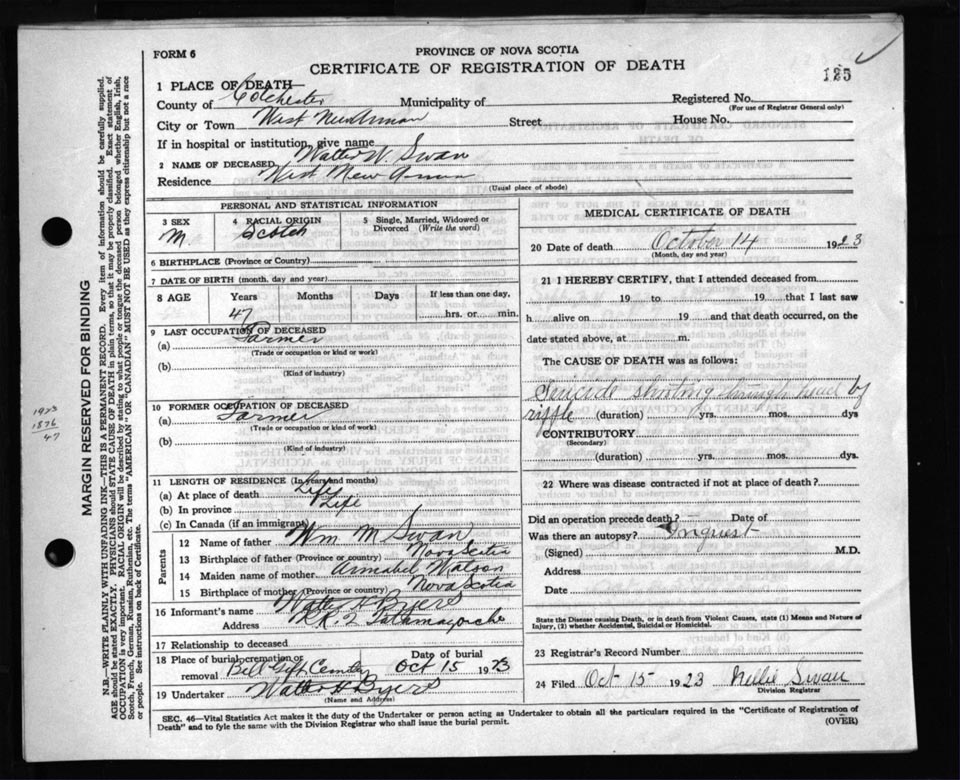 FORM 6
PROVINCE OF NOVA SCOTIA
CERTIFICATE OF REGISTRATION OF DEATH
125
1 PLACE OF DEATH
County of Colchester Municipality of Registered No.
(For use of Registrar General only)
City or Town West Street House No.
If in hospital or institution, give name
2 NAME OF DECEASED Walter W. Swan
Residence West New Annan
(Usual place of abode)
PERSONAL AND STATISTICAL INFORMATION
3 SEX 4 RACIAL ORIGIN 5 Single, Married, Widowed or
Divorced (Write the word)
M. Scotch
6 BIRTHPLACE (Province or Country)
7 DATE OF BIRTH (month, day and year)
8 AGE Years Months Days If less than one day,
47 hrs. or min.
9 LAST OCCUPATION OF DECEASED
(a) Farmer
(Trade or occupation or kind of work)
(b)
(Kind of industry)
10 FORMER OCCUPATION OF DECEASED
(a) Farmer
(Trade or occupation or kind of work)
(b)
(Kind of industry)
11 LENGTH OF RESIDENCE (In years and months)
(a) At place of death Life
(b) In province Life
(c) In Canada (if an immigrant)
Parents
12 Name of father Wm M Swan
13 Birthplace of father (Province or country) Nova Scotia
14 Maiden name of mother Annabel Watson
15 Birthplace of mother (Province or country) Nova Scotia
16 Informant's name Walter H Byers
Address R.R. 2 Tatamagouche
17 Relationship to deceased
18 Place of burial, cremation or Date of burial
removal Bell Cemetry Oct 15 1923
19 Undertaker Walter H Byers
(Name and Address)
MEDICAL CERTIFICATE OF DEATH
20 Date of death October 14 1923
(Month, day and year)
21 I HEREBY CERTIFY, that I attended deceased from
19 to 19 that I last saw
h alive on 19 and that death occurred, on the
date stated above, at m.
The CAUSE OF DEATH was as follows:
Suicide shooting through head by
riffle (duration) yrs. mos. dys
CONTRIBUTORY
(Secondary)
(duration) yrs. mos. dys.
22 Where was disease contracted if not at place of death?
Did an operation precede death? Date of
Was there an autopsy?
(Signed) M.D.
Address
Date
State the Disease causing Death, or in death from Violent Causes, state (1) Means and Nature of
Injury, (2) whether Accidental, Suicidal or Homicidal.
23 Registrar's Record Number
24 Filed Oct 15 1923 Nellie Swan
Division Registrar
SEC. 46—Vital Statistics Act makes it the duty of the Undertaker or person acting as Undertaker to obtain all the particulars required in the "Certificate of Registration of
Death" and to fyle the same with the Division Registrar who shall issue the burial permit.
(OVER)
MARGIN RESERVED FOR BINDING
N.B.—WRITE PLAINLY WITH UNFADING INK—THIS IS A PERMANENT RECORD. Every item of information should be carefully supplied.
AGE should be stated EXACTLY. PHYSICIANS should STATE CAUSE OF DEATH in plain terms, so that it may be properly classified. Exact statement of
OCCUPATION is very important. RACIAL ORIGIN will be described by stating to what people or tongue the deceased person belonged whether English, Irish,
Scotch, French, German, Russian, Ruthenian, etc. The terms "AMERICAN" or "CANADIAN" MUST NOT BE USED as they express citizenship but not a race
or people. See instructions on back of Certificate.
1923
1876
47